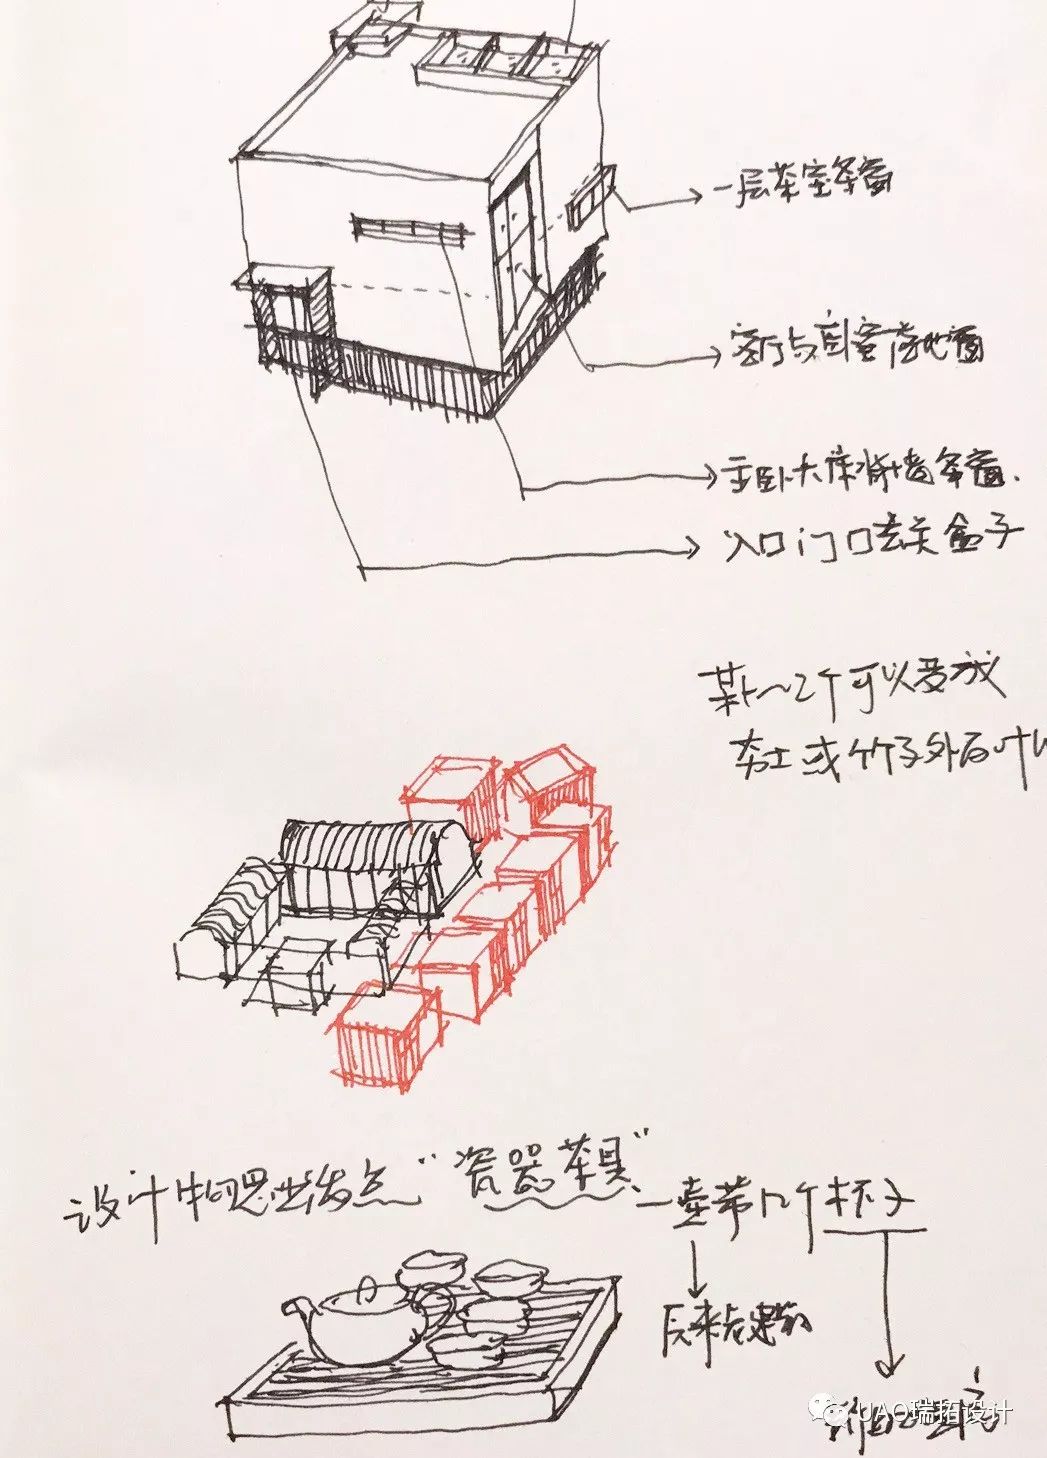 一层茶室条窗
客厅与卧室落地窗
主卧大床背墙条窗.
入口门口玄关盒子
某1~2个可以变成
夯土或竹子外百叶
设计构思出发点“瓷器茶具”
一壶带几个杯子
原来老建筑
UAO瑞拓设计